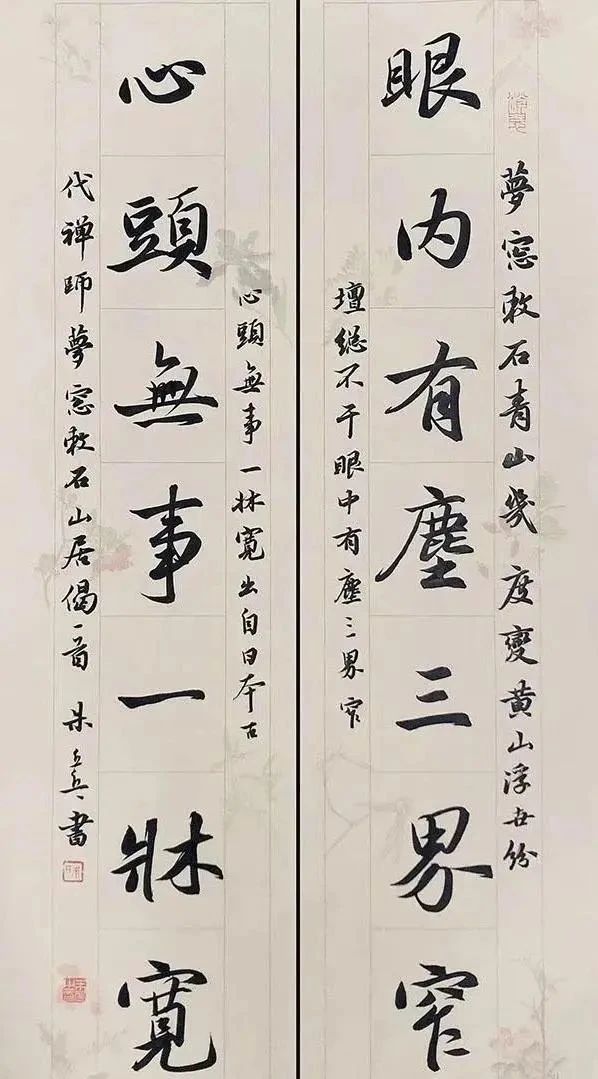 夢窓敕石青山幾度變黄山浮世紛
眼内有塵三界窄
壇総不干眼中有塵三界窄
心頭無事一牀寬出自日本古
心頭無事一牀寬
代禅師夢窓敕石山居偈一首 朱 書